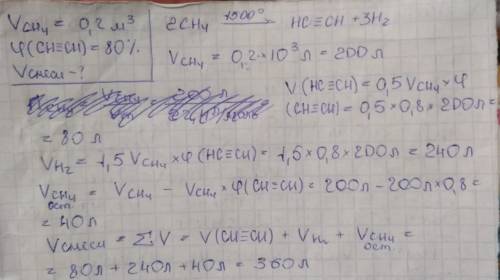 V CH₄ = 0,2 м³
φ(CH≡CH) = 80%
Vсмеси - ?
2CH₄ 1500° → HC≡CH + 3H₂
V CH₄ = 0,2 × 10³ л = 200 л
V(HC≡CH) = 0,5 V CH₄ × φ
(CH≡CH) = 0,5 × 0,8 × 200 л =
= 80 л
V H₂ = 1,5 V CH₄ × φ (HC≡CH) = 1,5 × 0,8 × 200 л = 240 л
V CH₄ ост. = V CH₄ - V CH₄ × φ(CH≡CH) = 200 л - 200 л × 0,8 =
= 40 л
Vсмеси = ΣV = V(CH≡CH) + V H₂ + V CH₄ ост. =
= 80 л + 240 л + 40 л = 360 л